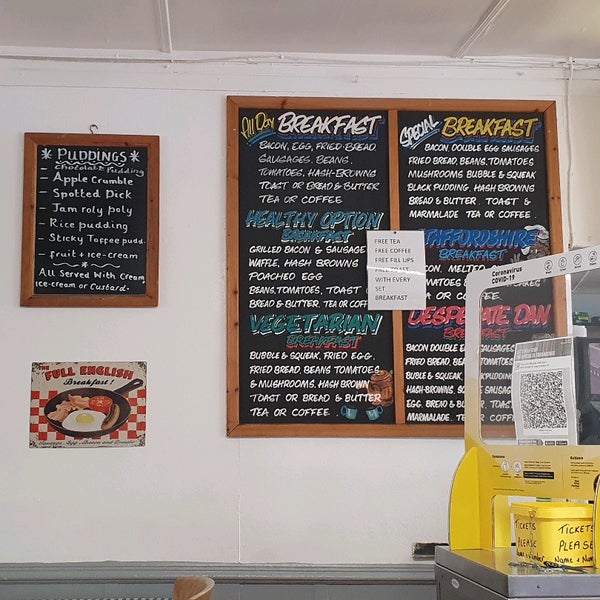 * PUDDINGS *
- Chocolate Pudding
- Apple Crumble
- Spotted Dick
- Jam roly poly
- Rice pudding
- Sticky Toffee pudd.
- fruit + ice-cream
All Served With Cream
ice-cream or Custard.
THE FULL ENGLISH
Breakfast!
All Day BREAKFAST
BACON, EGG, FRIED BREAD
SAUSAGES, BEANS,
TOMATOES, HASH-BROWNS
TOAST OR BREAD & BUTTER
TEA OR COFFEE
HEALTHY OPTION
BREAKFAST
GRILLED BACON & SAUSAGE
WAFFLE, HASH BROWNS
POACHED EGG
BEANS, TOMATOES, TOAST
BREAD & BUTTER. TEA OR COFF
VEGETARIAN
BREAKFAST
BUBBLE & SQUEAK, FRIED EGG,
FRIED BREAD BEANS TOMATOES
& MUSHROOMS, HASH BROWN
TOAST OR BREAD & BUTTER
TEA OR COFFEE.
FREE TEA
FREE COFFEE
FREE FILL UPS
FREE TOAST
WITH EVERY
SET
BREAKFAST
SPECIAL BREAKFAST
BACON, DOUBLE EGG SAUSAGES
FRIED BREAD, BEANS, TOMATOES
MUSHROOMS BUBBLE & SQUEAK
BLACK PUDDING, HASH BROWNS
BREAD & BUTTER. TOAST &
MARMALADE TEA OR COFFEE.
STAFFORDSHIRE
BREAKFAST
BACON, MELTED
TOMATOES
TEA OR COFFEE.
DESPERATE DAN
BREAKFAST
BACON DOUBLE EGG SAUSAGES
FRIED BREAD, BEANS, TOMATOES
BUBBLE & SQUEAK PUDDING
HASH-BROWNS, SAUSAGE
EGG, BREAD & BUTTER, TOAST
MARMALADE. TEA OR COFFEE
Coronavirus
COVID-19
Symptoms
Guidance
TICKETS
PLEASE
TICKETS
PLEASE
Name + Num